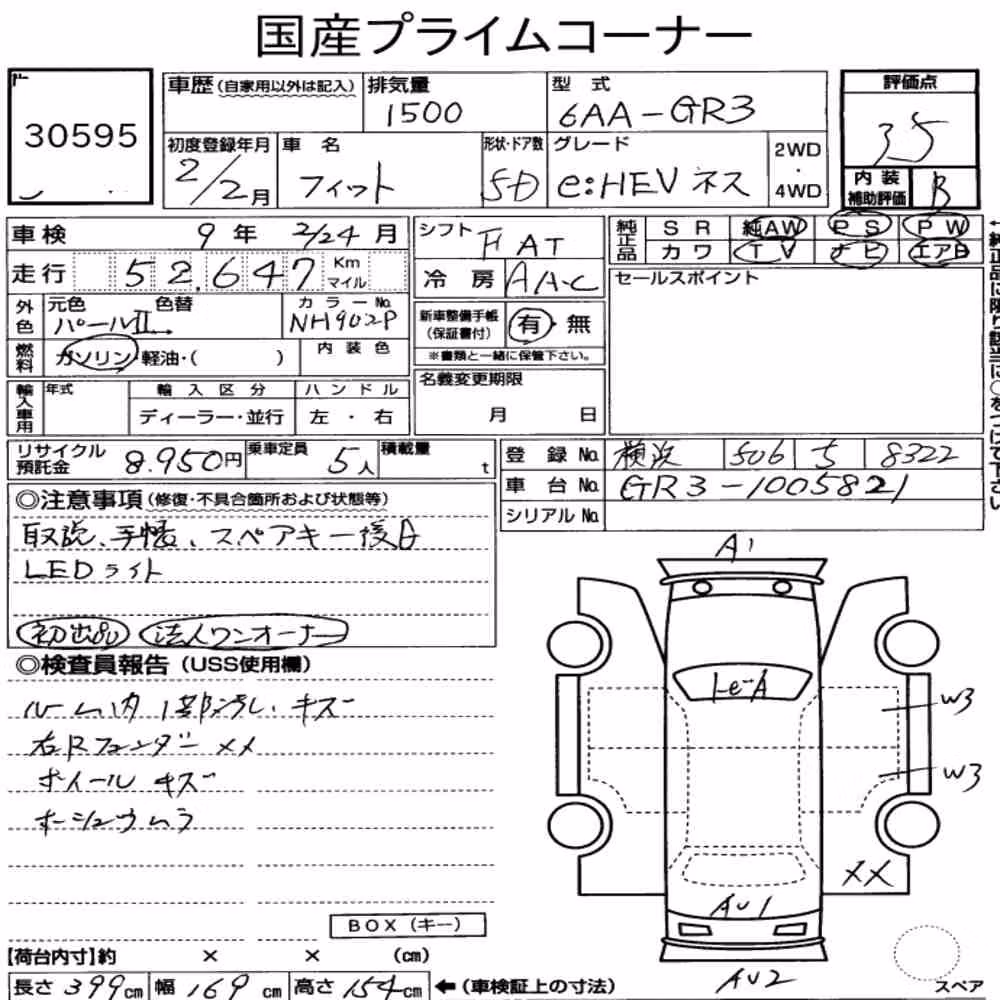 国産プライムコーナー
30595
車歴（自家用以外は記入）
排気量
1500
型式
6AA-GR3
評価点
3.5
初度登録年月
2/2月
車名
フィット
形状・ドア数
5D
グレード
e:HEV ネス
2WD
・
4WD
内装
補助評価
B
車検 9年 2/24月
走行 52,647 Km マイル
シフト FAT
冷房 AAC
純正品 SR 純AW PS PW
カワ TV ナビ エアB
セールスポイント
外色 元色 色替 カラーNo.
パールII NH902P
新車整備手帳
（保証書付） 有・無
※書類と一緒に保管下さい。
燃料 ガソリン・軽油・( ) 内装色
名義変更期限
月 日
輸入車用 年式 輸入区分 ハンドル
ディーラー・並行 左・右
リサイクル
預託金 8,950円 乗車定員 5人 積載量 t
登録No. 横浜 506 5 8322
車台No. GR3-1005821
シリアルNo.
◎注意事項（修復・不具合箇所および状態等）
取説、手帳、スペアキー後日
LEDライト
初出品 法人ワンオーナー
◎検査員報告（USS使用欄）
ルーム内1部汚れ、キズ
右Rフェンダー××
ホイールキズ
ホシュウムラ
A1
レーA
W3
W3
××
AU1
AU2
BOX（キー）
【荷台内寸】約 × × (cm)
長さ399cm 幅169cm 高さ154cm ←（車検証上の寸法）
スペア